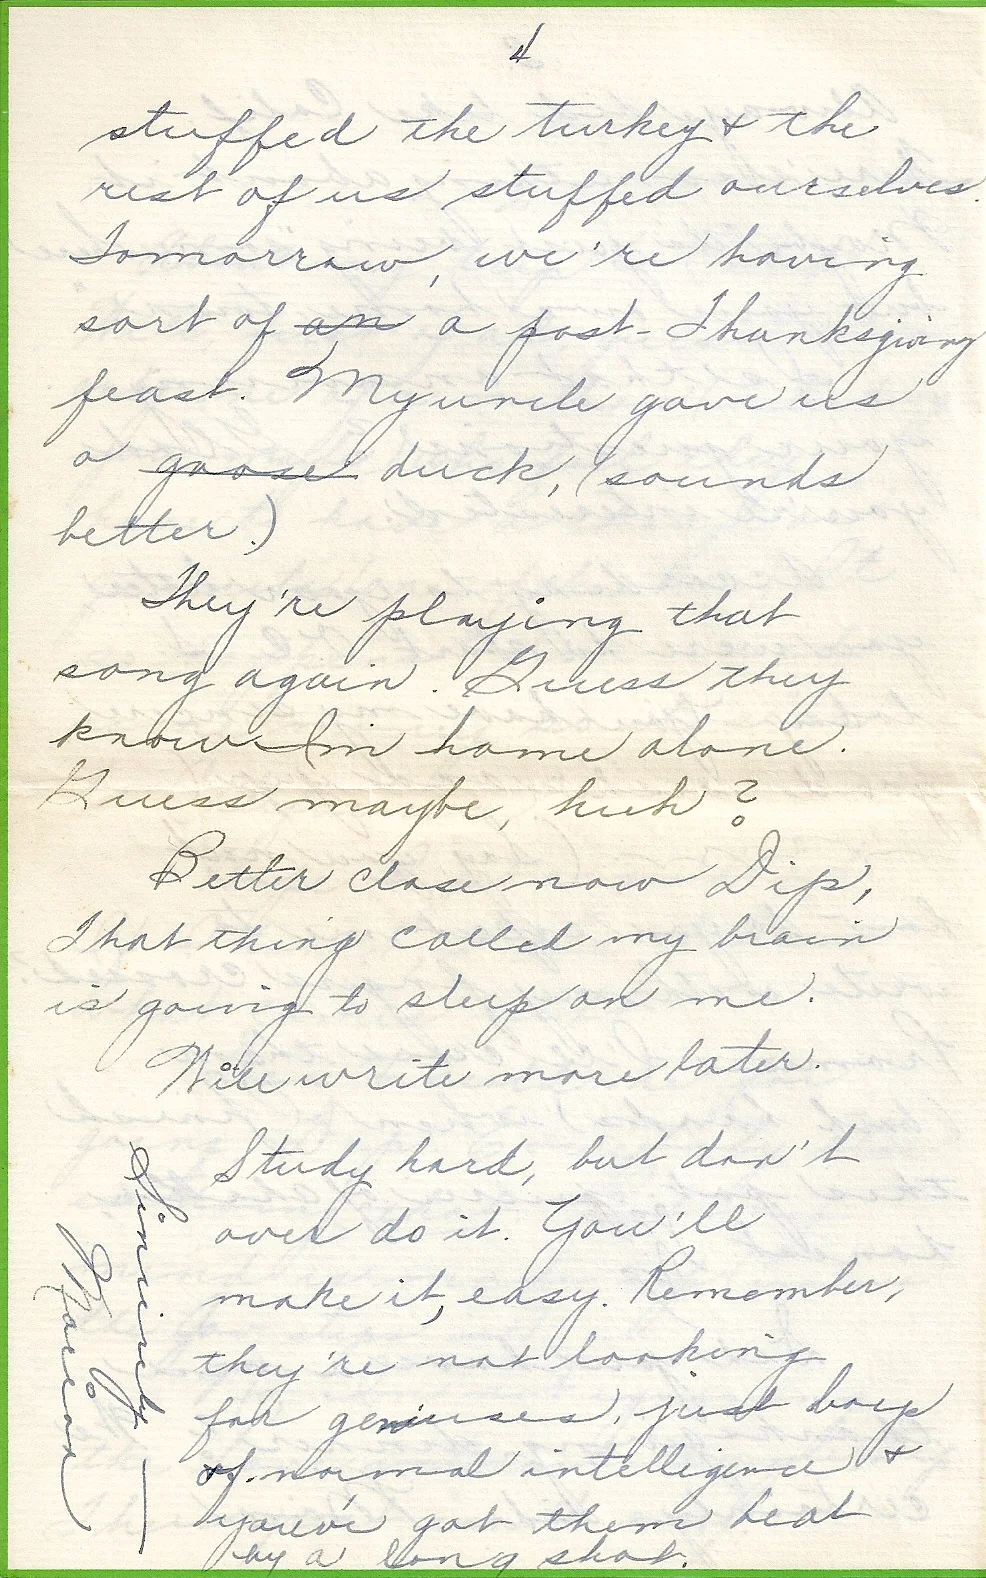 4
stuffed the turkey & the
rest of us stuffed ourselves.
Tomorrow, we're having
sort of an a post-Thanksgiving
feast. My uncle gave us
a goose duck, (sounds
better.)
They're playing that
song again. Guess they
know I'm home alone.
Guess maybe, huh?
Better close now Dip,
That thing called my brain
is going to sleep on me.
Will write more later.
Study hard, but don't
over do it. You'll
make it, easy. Remember,
they're not looking
for geniuses, just boys
of normal intelligence &
you've got them beat
by a long shot.
Sincerely —
Marion